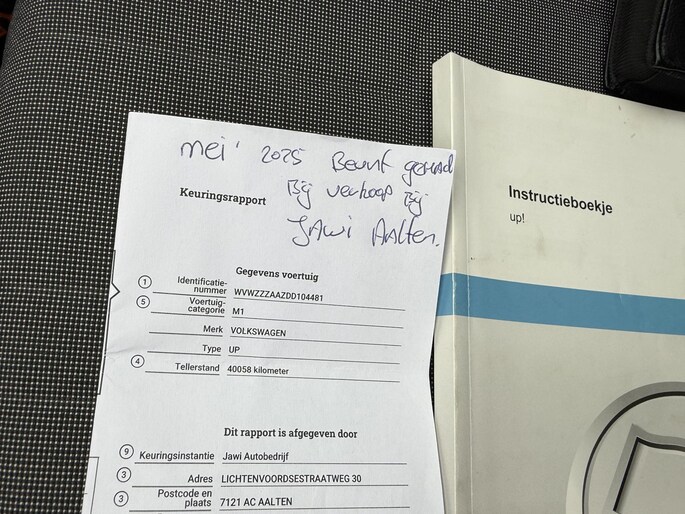 mei' 2025 Beurt gehad
Bij verkoop Bij
JAWi AAlten.
Keuringsrapport
Gegevens voertuig
1 Identificatie-
nummer WVWZZZAAZDD104481
5 Voertuig-
categorie M1
Merk VOLKSWAGEN
Type UP
4 Tellerstand 40058 kilometer
Dit rapport is afgegeven door
9 Keuringsinstantie Jawi Autobedrijf
3 Adres LICHTENVOORDSESTRAATWEG 30
3 Postcode en
plaats 7121 AC AALTEN
Instructieboekje
up!